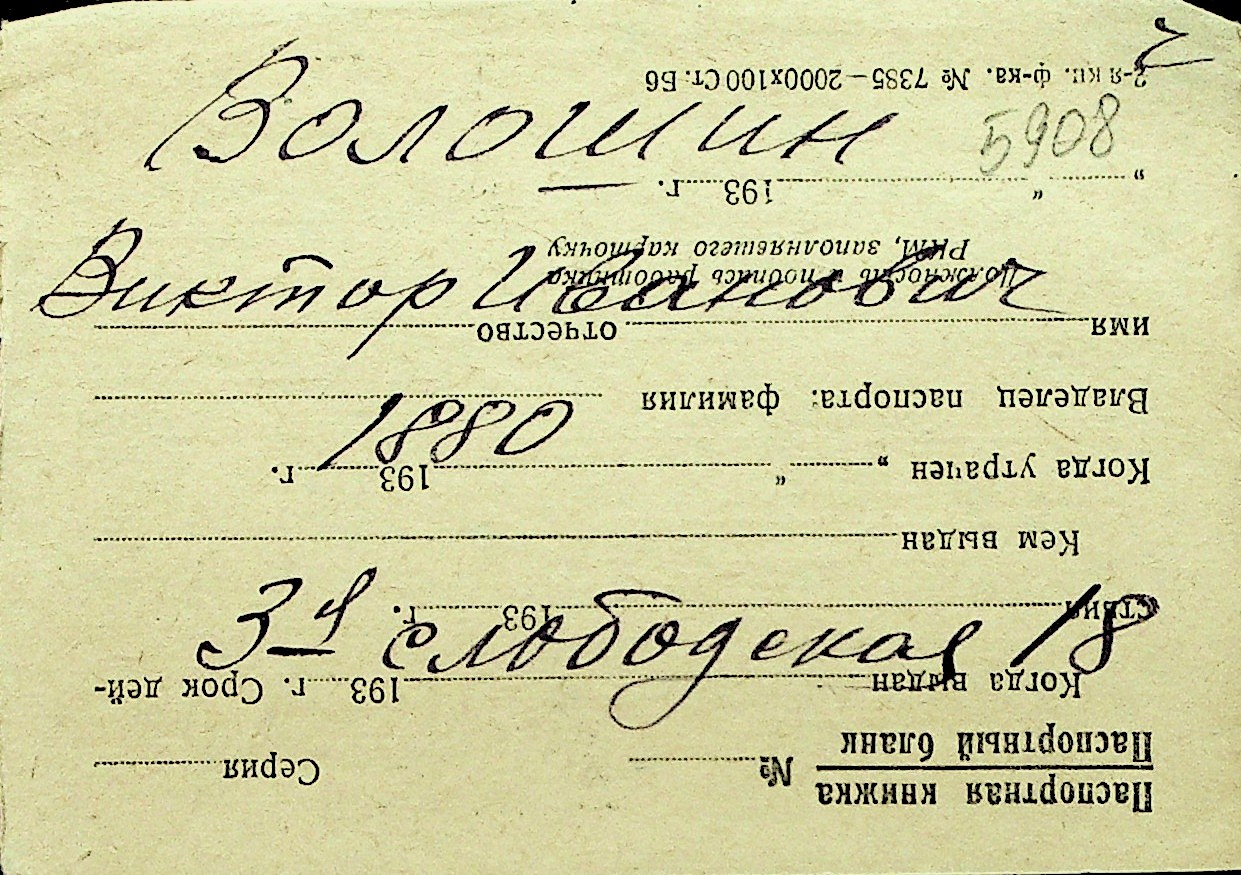 Волошин
Виктор Иванович
1880
3-я слободская 18
5908
Паспортная книжка
Паспортный бланк № Серия
Когда выдан 193 г. Срок дей-
ствия 193 г.
Кем выдан
Когда утрачен „ “ 193 г.
Владелец паспорта: фамилия
имя отчество
Должность и подпись работника
РКМ, заполнявшего карточку
„ “ 193 г.
2-я кн. ф-ка. № 7385—2000х100 Ст. Б6